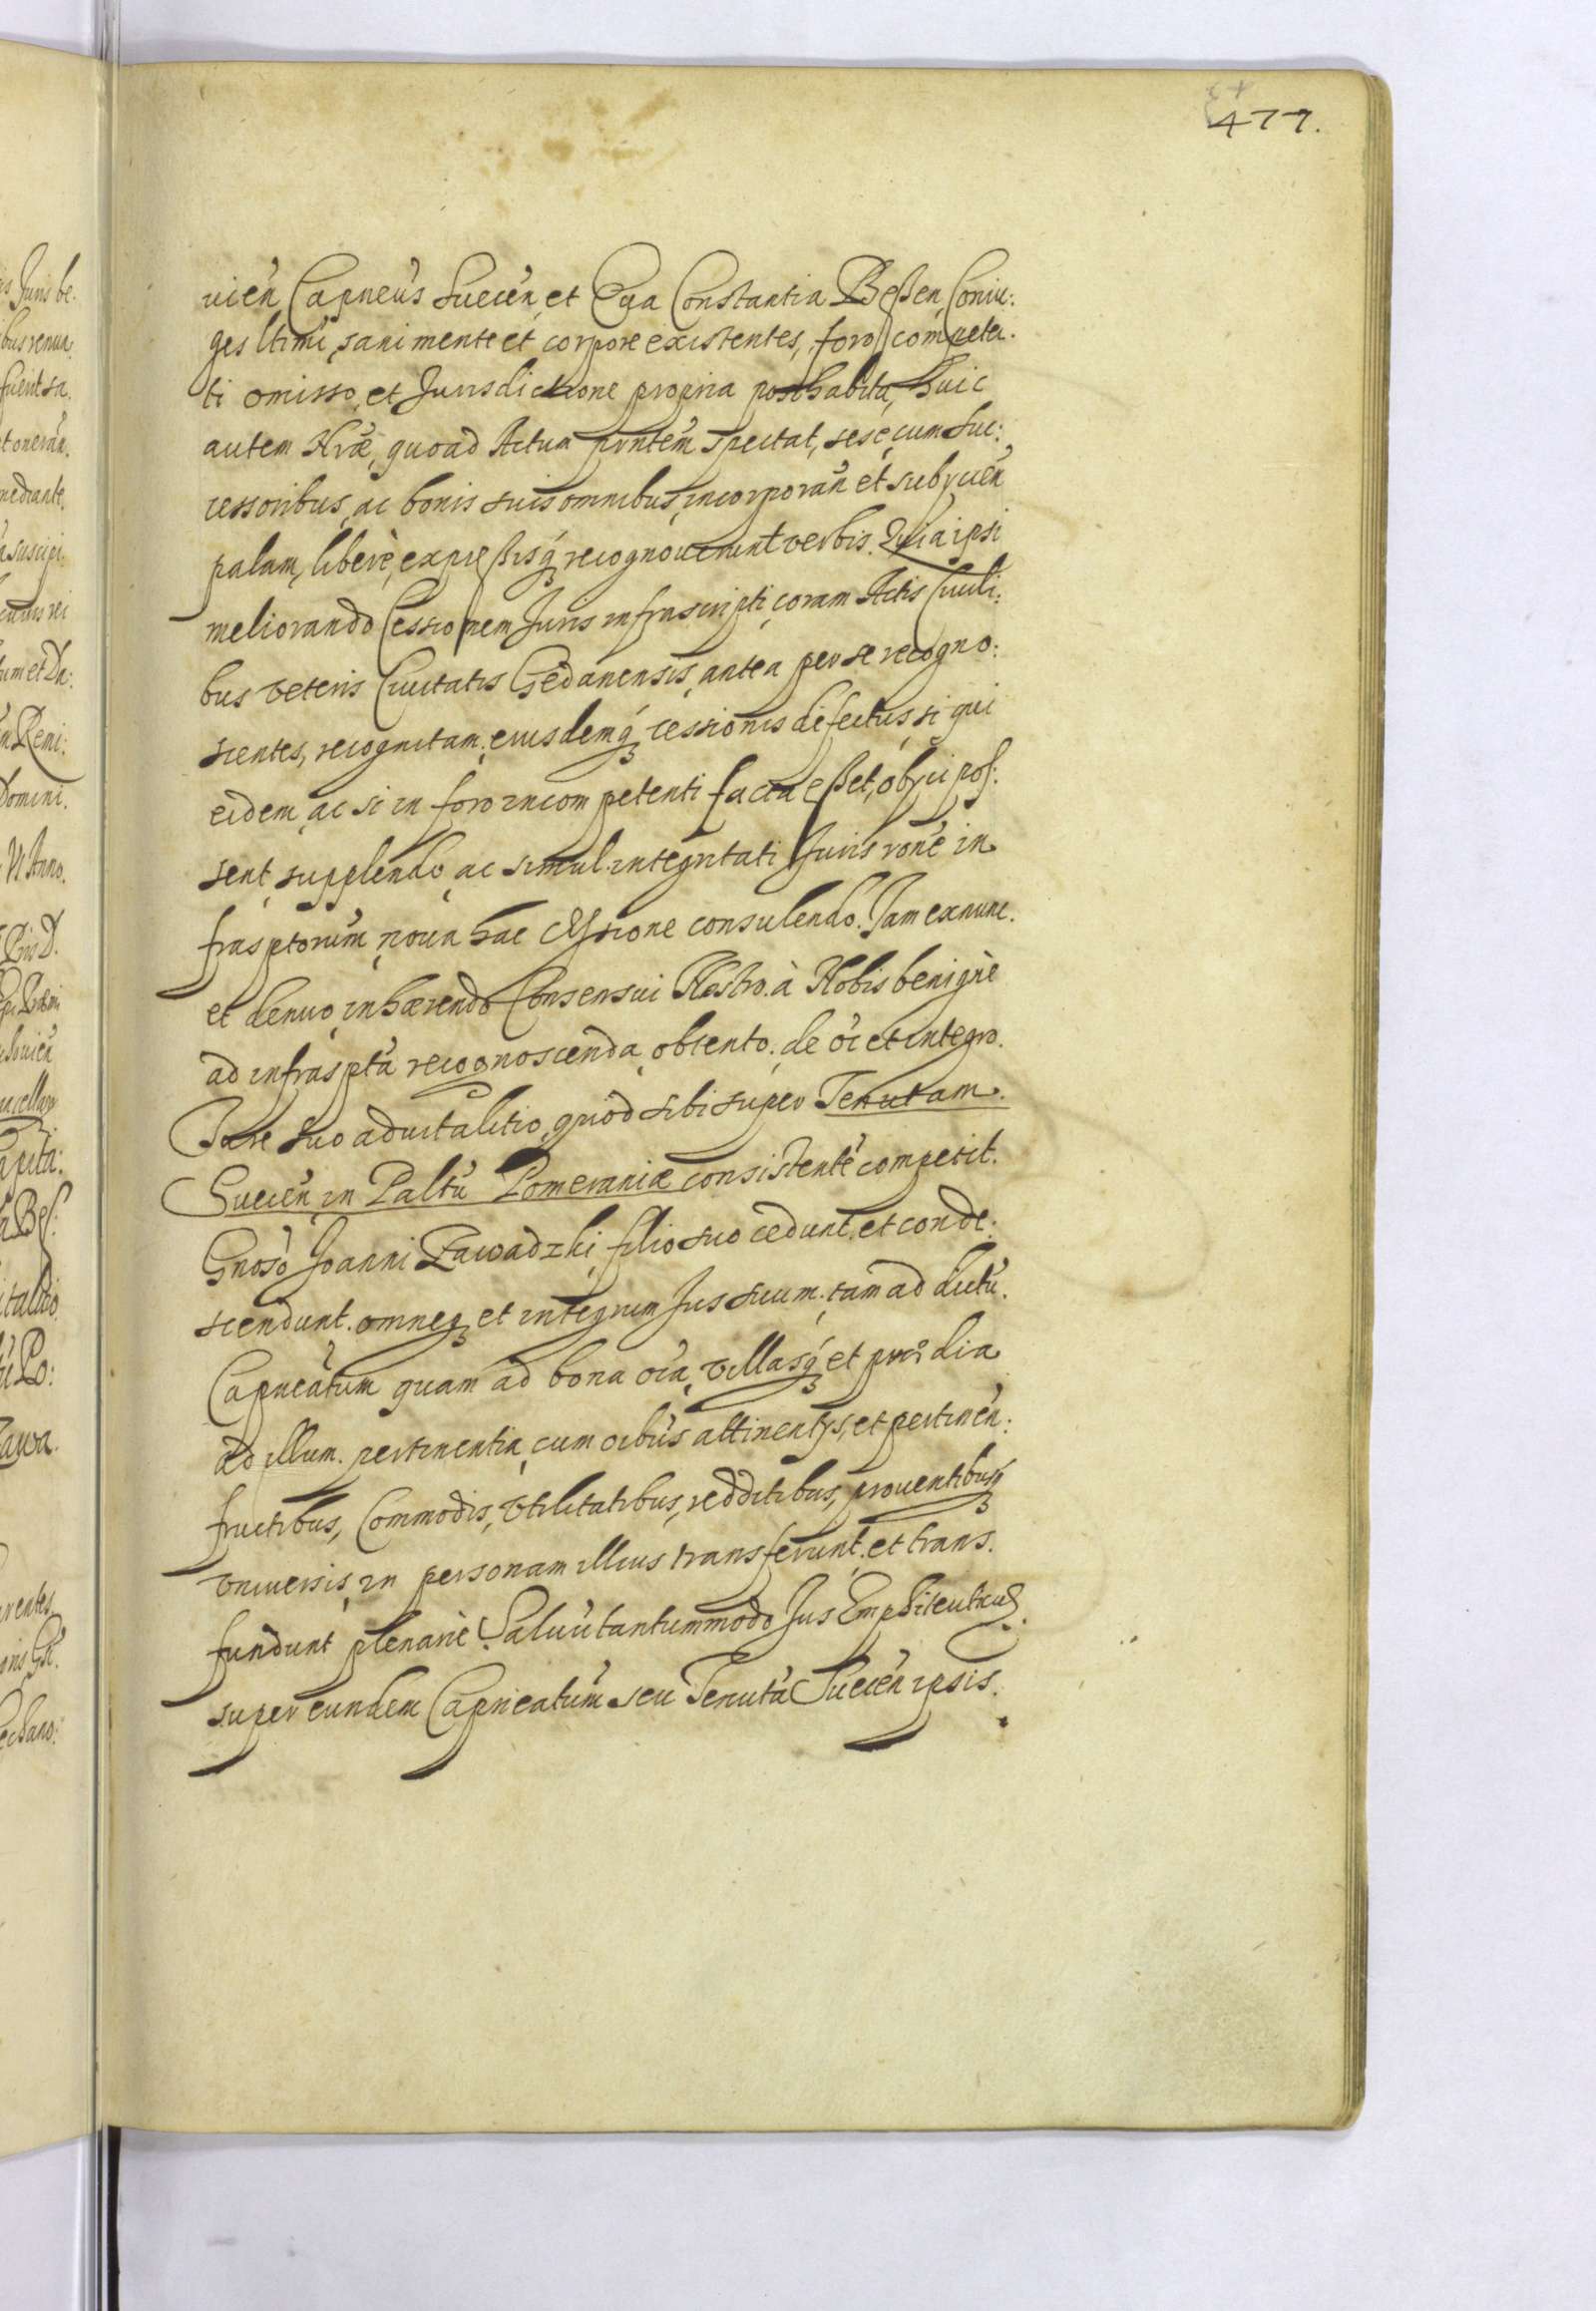 477.
uień Capneús Suecéń, et Eua Constantia Beßen Coniu:
ges ltimi, sani mente et corpore existentes, foro competen
ti omisso, et Jurisdictione propria posthabita, huic
autem Nræ, quoad Actum pṅtem spectat, sese cum Suc:
cessoribus, ac bonis suis omnibus, incorporań et subycień
palam, liberè, expreßisq recognouerunt verbis. Quia ipsi
meliorando Cessionem Juris infrascripti, coram Actis Ciuili:
bus veteris Ciuitatis Gedanensis, antea per se recogno:
scentes, recognitam, eiusdemq cessionis defectus, si qui
eidem, ac si in foro incompetenti facta eßet, obyci pos:
sent, supplendo, ac simul integritati Juris roné in
frasptorum, noua hac Ceßione consulendo. Jam exnunc.
et denuo, inhærendo Consensui Nostro à Nobis benignè
ad infrasptá recognoscenda, obtento, de oi et integro.
Jure suo aduitalitio, quod sibi super Tenutam.
Suecéń in Paltú Pomeraniæ consistenté competit.
Gnoso Joanni Zawadzki, filio suo cedunt, et conde:
scendunt. omneq et integrum Jus suum, tam ad dictú
Capneátum quam ad bona oia, villasq et prædia
ad illum pertinentia, cum oibus attinentys, et pertineń:
fructibus, Commodis, vtilitatibus, redditibus, prouentibusq
vniuersis, in personam illius transferunt, et trans.
fundunt plenariè. Saluú tantummodo Jus Emphiteuticum
super eundem Capneatum seu Tenutá Suecéń ipsis.